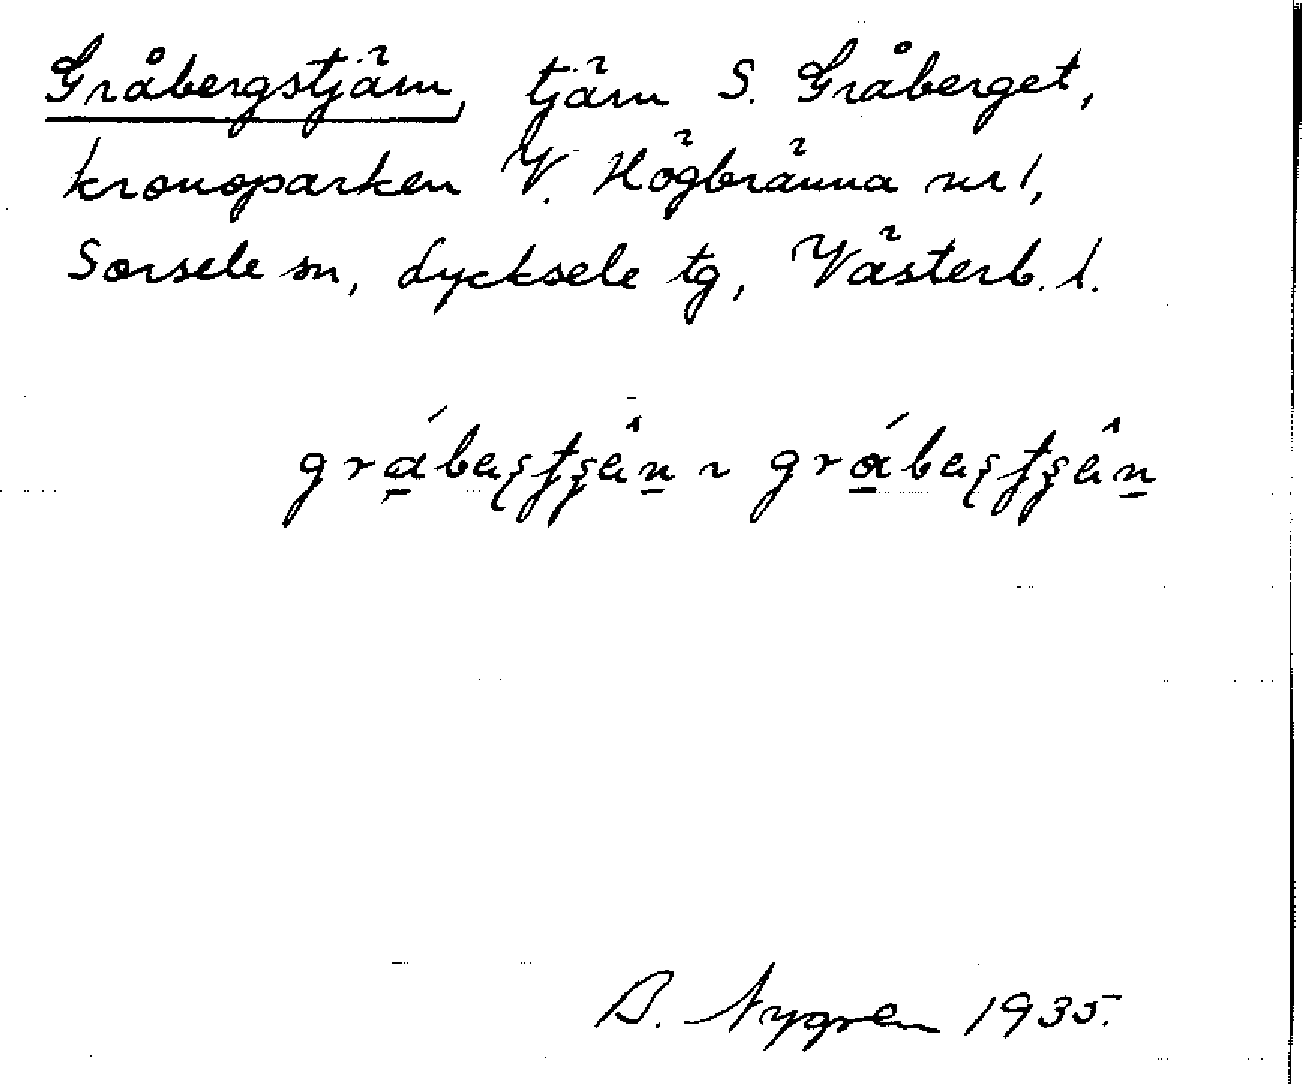 Gråbergstjärn, tjärn S. Gråberget,
kronoparken V. Högbränna nr 1,
Sorsele sn, Lycksele tg, Västerb. l.
A. Nygren 1935.